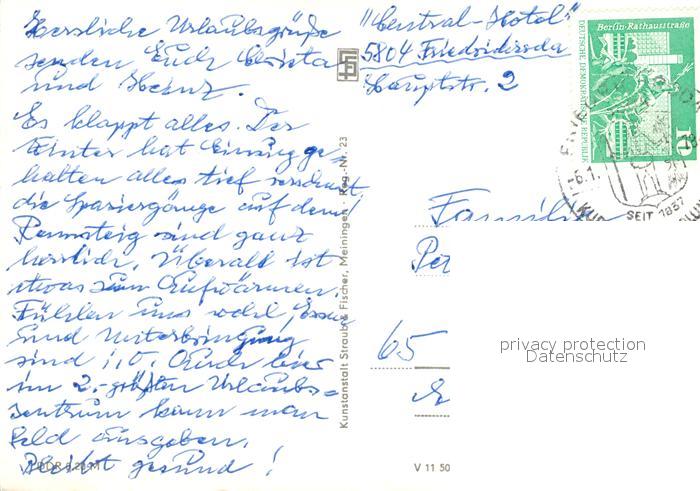 Herzliche Urlaubsgrüße
senden Euch Christa
und Heinz.
Es klappt alles. Der
Winter hat Einzug ge-
halten alles tief verschneit,
die Spaziergänge auf dem
Rennsteig sind ganz
herrlich. Überall ist
etwas zum Aufwärmen.
Fühlen uns wohl, Essen
und Unterbringung
sind i.O. Auch hier
im 2.-größten Urlaubs-
zentrum kann man
Geld ausgeben.
Bleibt gesund!
"Central-Hotel"
5804 Friedrichroda
Hauptstr. 2
Berlin-Rathausstraße
DEUTSCHE DEMOKRATISCHE REPUBLIK
10
SEIT 1837
Familie
Pet
65
Kunstanstalt Straub & Fischer, Meiningen · Reg.-Nr. 23
privacy protection
Datenschutz
V 11 50